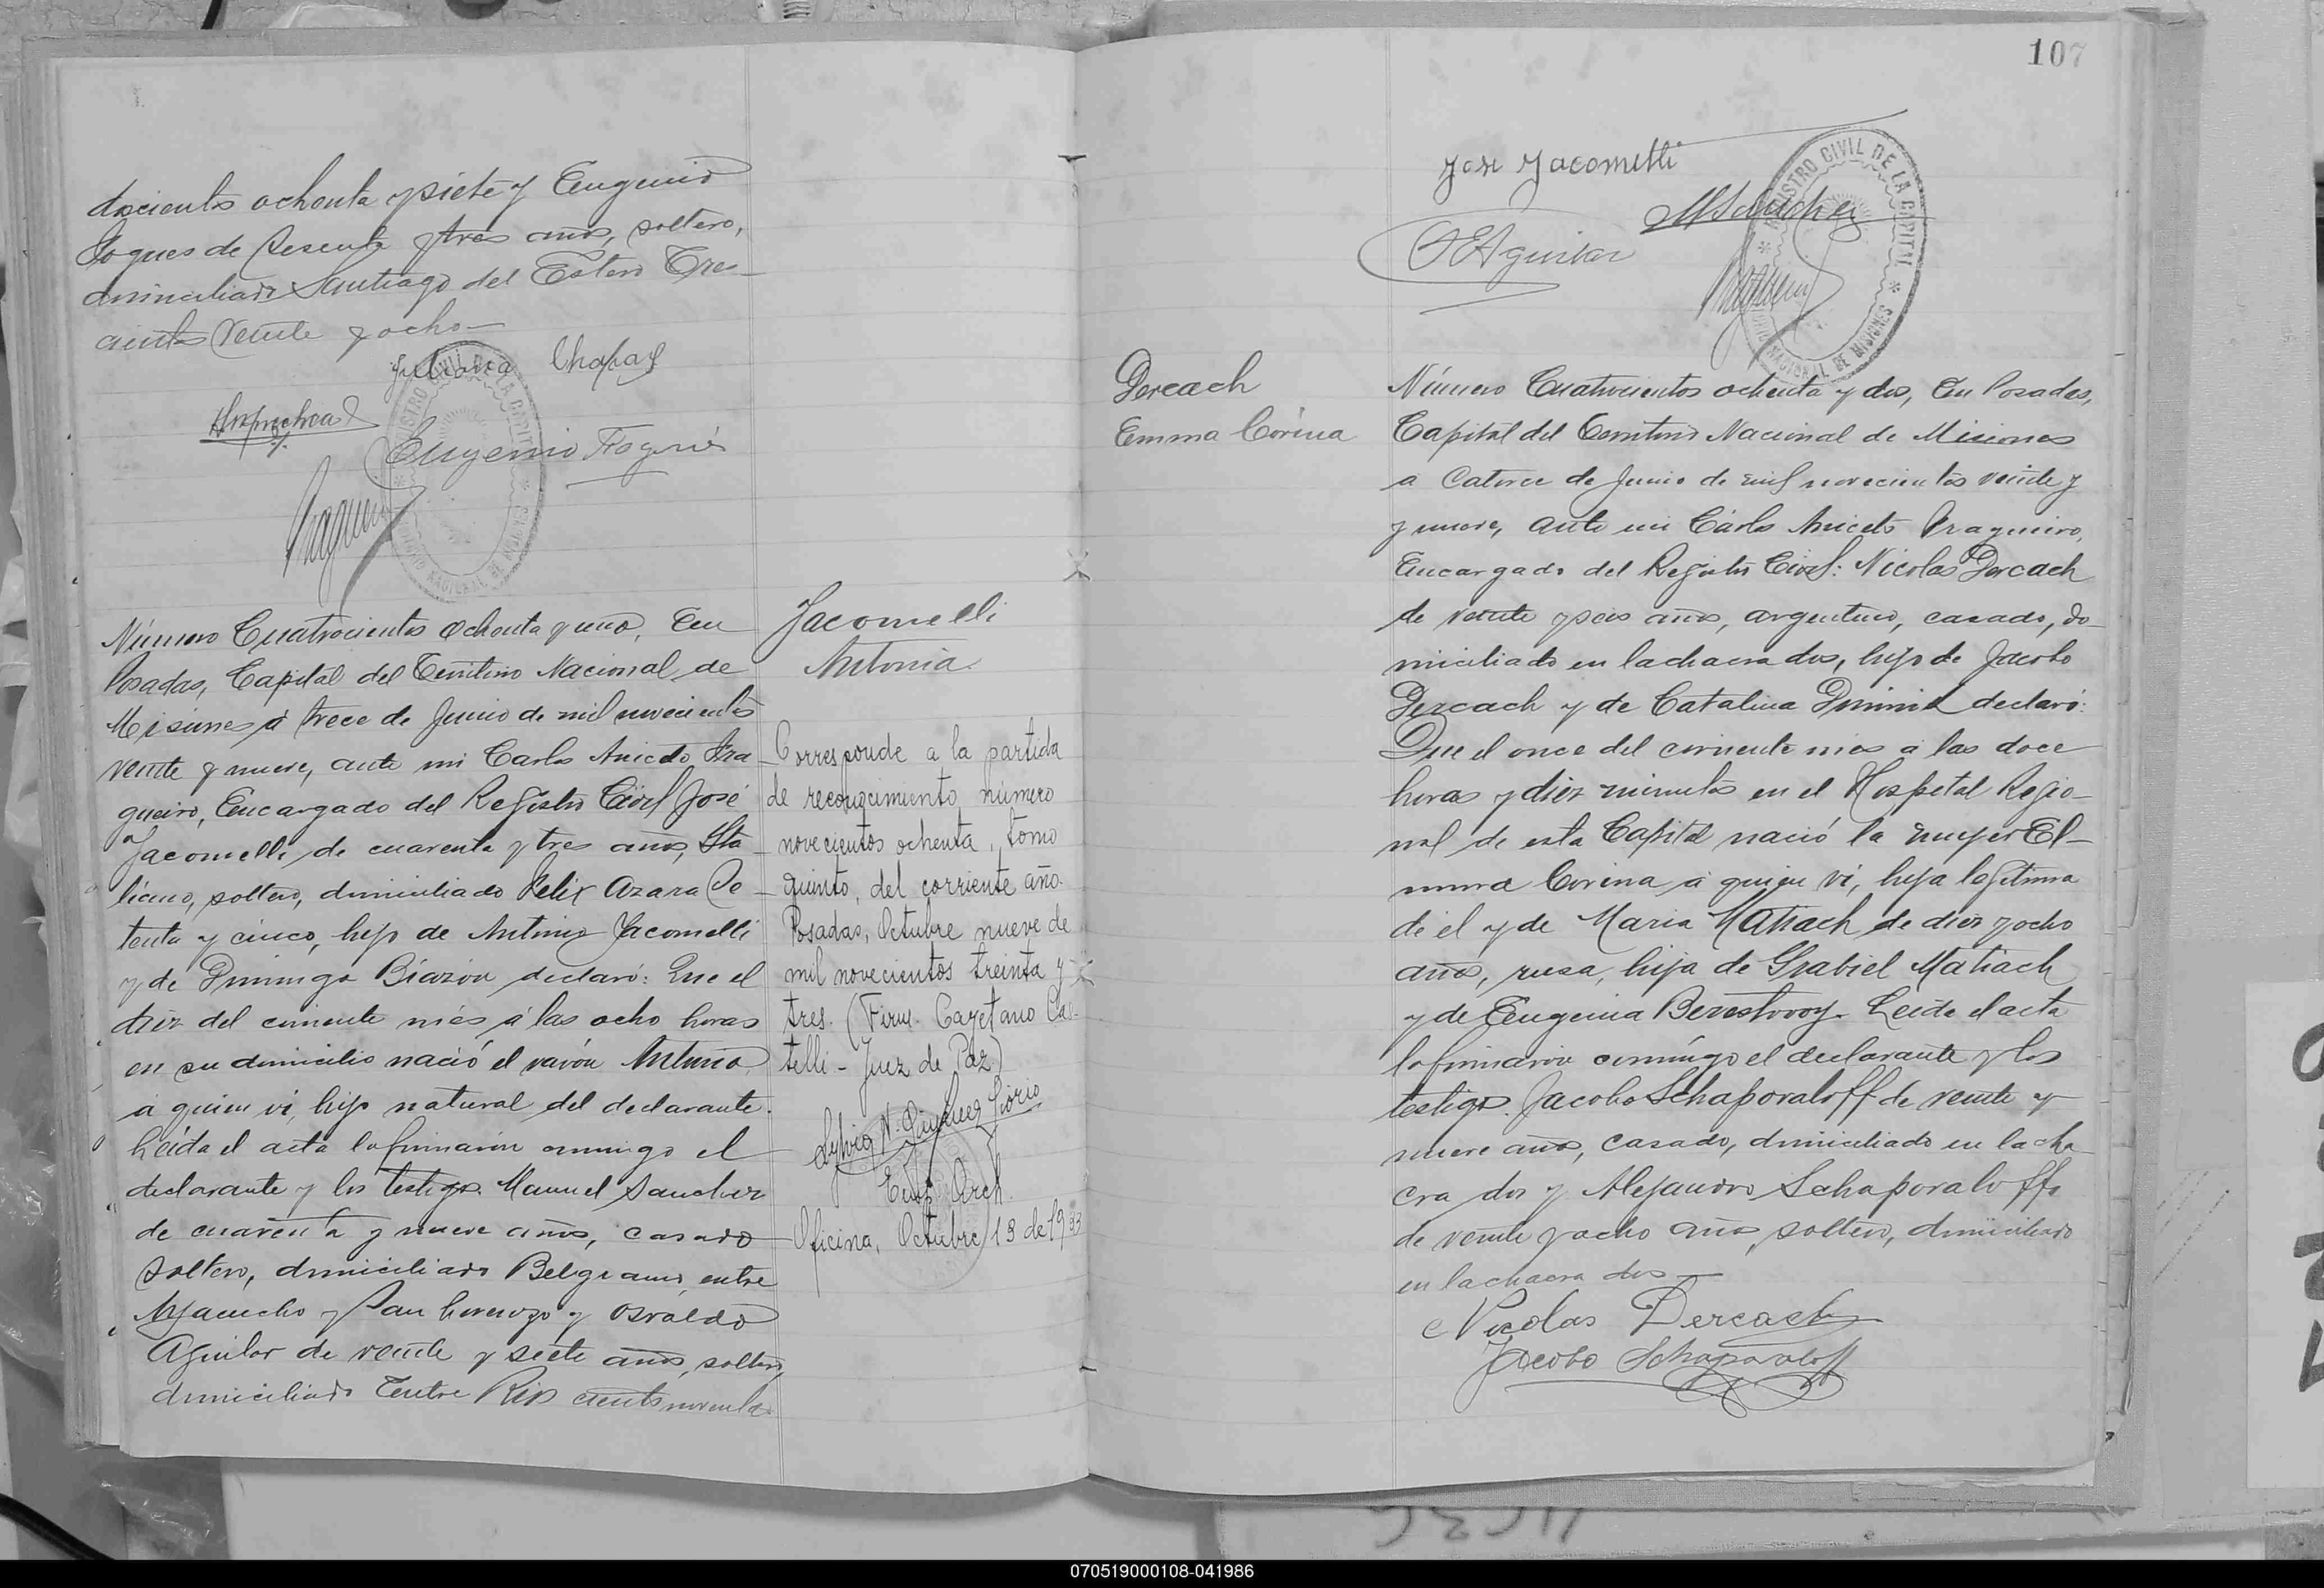 docientos ochenta y siete y Eugenio
Foques de sesenta y tres años, soltero,
domiciliado Santiago del Estero Tres
cientos veinte y ocho
Juliana Chapay
Eugenio Fogués
Número Cuatrocientos ochenta y uno, En
Posadas, Capital del Territorio Nacional de
Misiones á trece de Junio de mil novecientos
veinte y nueve, ante mi Carlos Aniceto Fra
gueiro, Encargado del Registro Civil José
Jacomelli, de cuarenta y tres años, Ita
liano, soltero, domiciliado Felix Azara Se
tenta y cinco, hijo de Antonio Jacomelli
y de Dominga Biazón declaró: Que el
diez del corriente més á las ocho horas
en su domicilio nació el varón Antonio
á quien ví, hijo natural del declarante.
Leída el acta la firmaron conmigo el
declarante y los testigos. Manuel Sanchez
de cuarenta y nueve años, casado
soltero, domiciliado Belgrano, entre
Ayacucho y San Lorenzo y Osvaldo
Aguilar de veinte y siete años, soltero,
domiciliado Entre Rios ciento noventa
Jacomelli
Antonia
Corresponde a la partida
de reconocimiento número
novecientos ochenta, tomo
quinto, del corriente año.
Posadas, Octubre nueve de
mil novecientos treinta y
tres. (Firm. Cayetano Cas-
telli - Juez de Paz)
Enc. Arch.
Oficina, Octubre 13 de 1933
107
Jose Jacomelli
M Sanchez
O E Aguilar
REGISTRO CIVIL DE LA CAPITAL
TERRITORIO NACIONAL DE MISIONES
Dercach
Emma Corina
Número Cuatrocientos ochenta y dos, En Posadas,
Capital del Territorio Nacional de Misiones
a Catorce de Junio de mil novecientos veinte y
y nueve, ante mi Carlos Aniceto Fragueiro,
Encargado del Registro Civil: Nicolas Dercach
de veinte y seis años, argentino, casado, do-
miciliado en la chacra dos, hijo de Jacobo
Dercach y de Catalina declaró:
Que el once del corriente mes a las doce
horas y diez minutos en el Hospital Regio-
nal de esta Capital nació la mujer El-
mma Corina a quien ví, hija legitima
de el y de Maria Matiach de diez y ocho
años, rusa, hija de Grabiel Matiach
y de Eugenia Berestovoy. Leida el acta
la firmaron conmigo el declarante y los
testigos. Jacobo Schaporaloff de veinte y
nueve años, casado, domiciliado en la cha-
cra dos y Alejandro Schaporaloff,
de veinte y ocho años, soltero, domiciliado
en la chacra dos
Nicolas Dercach
Jacobo Schaporaloff
070519000108-041986